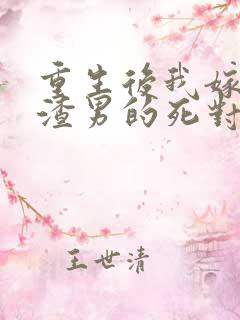 重生後我嫁
渣男的死對
王世清